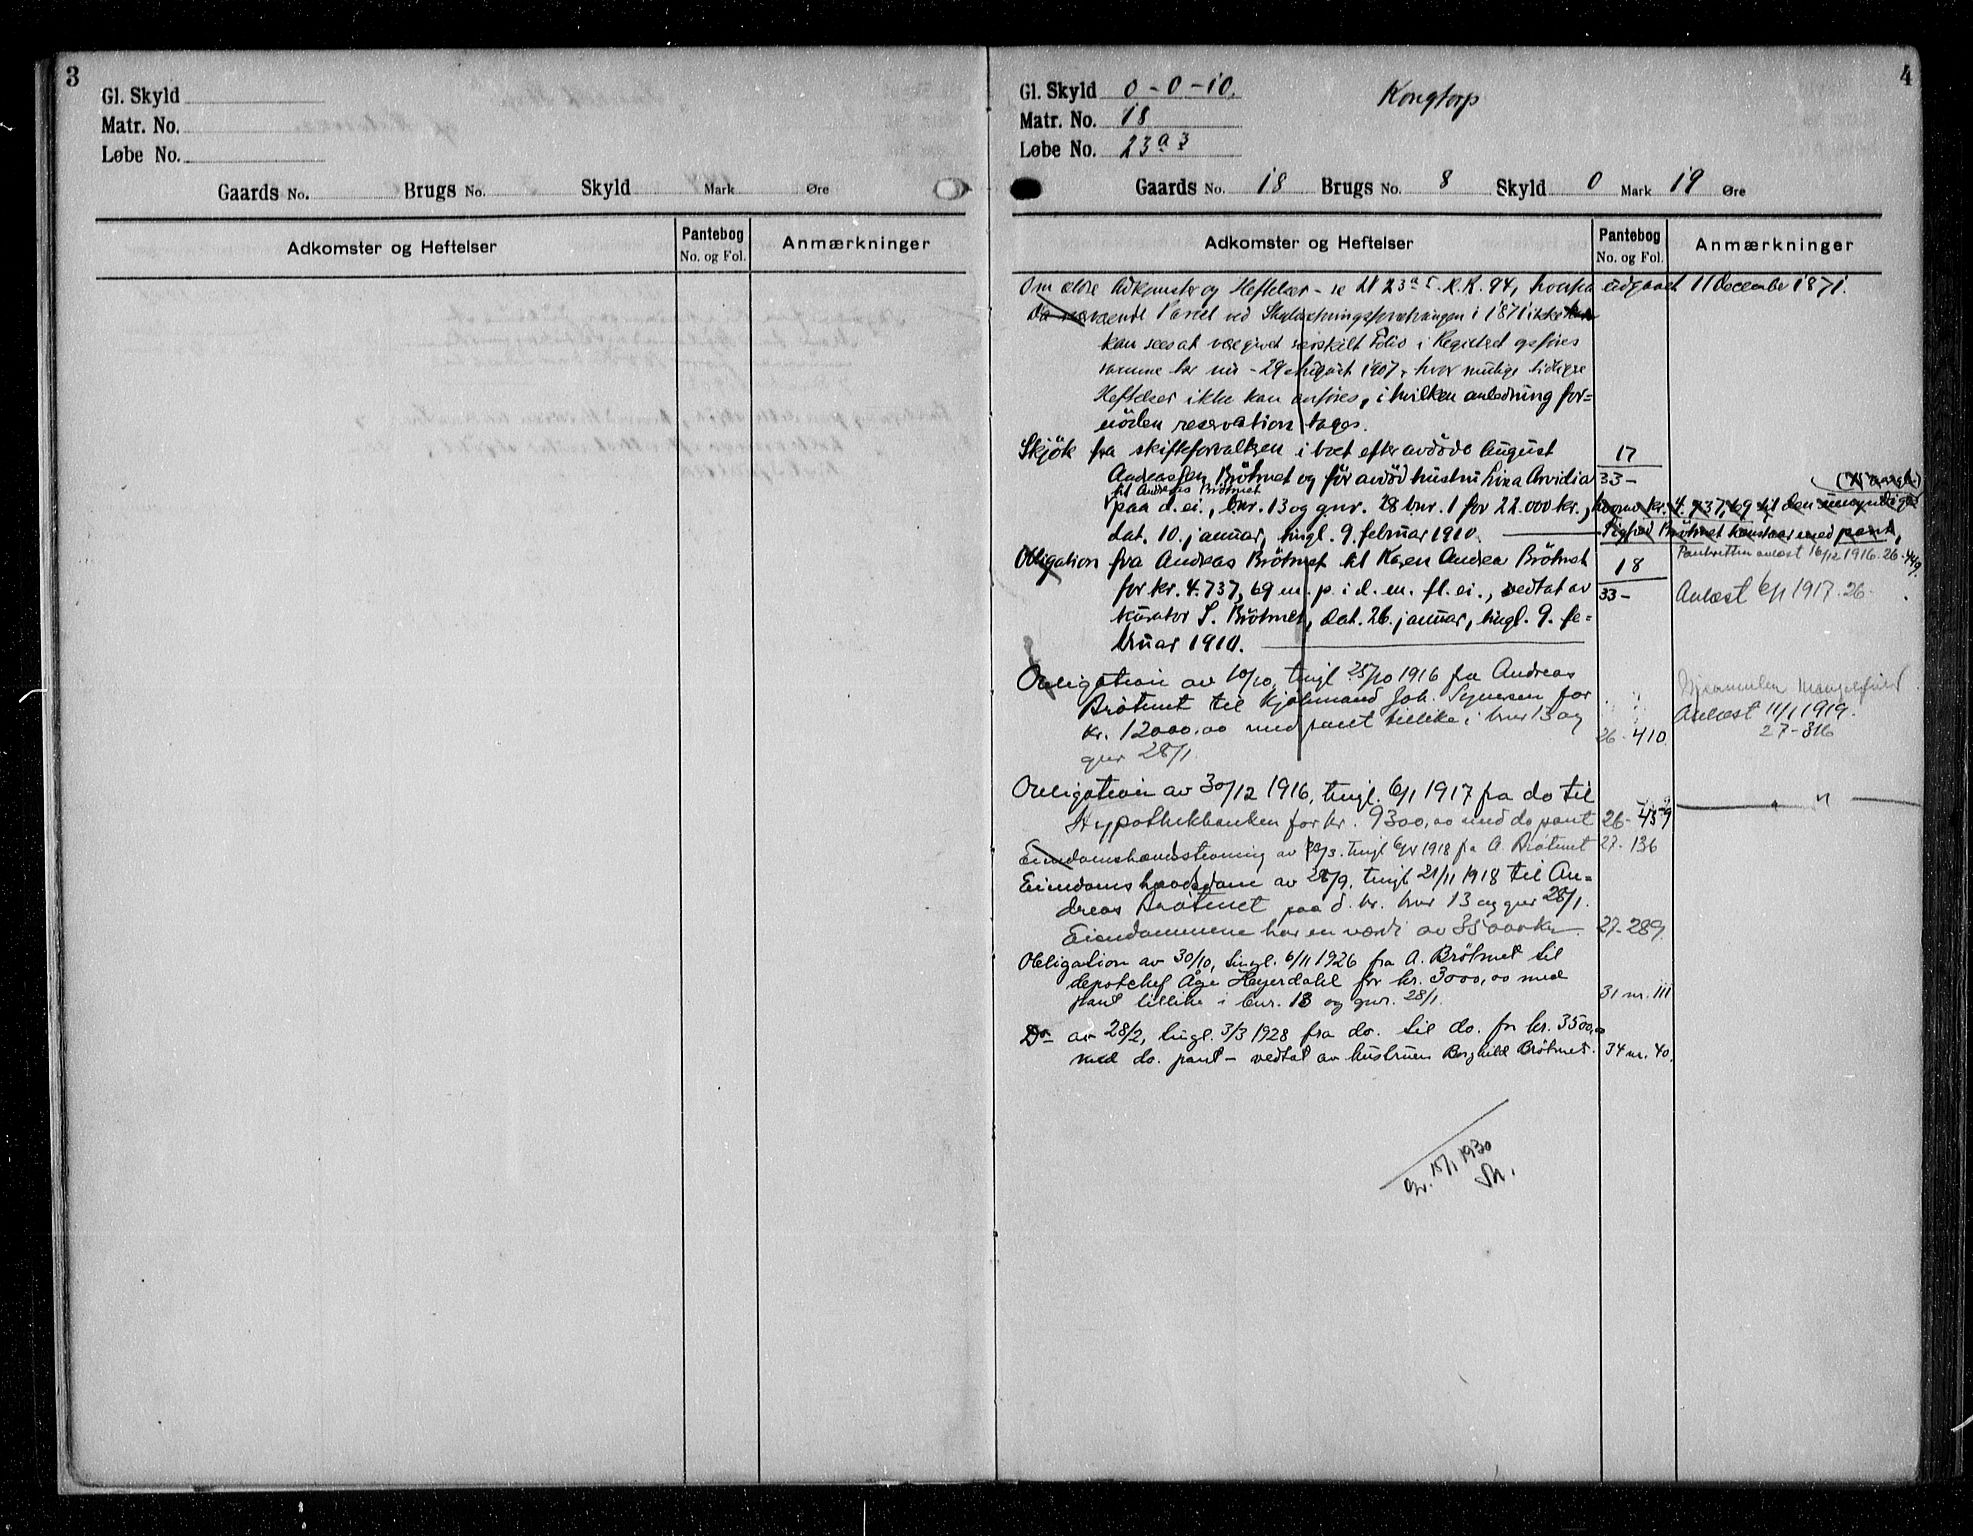 3
Gl. Skyld
Matr. No.
Løbe No.
Gaards No. Brugs No. Skyld Mark Øre
Adkomster og Heftelser Pantebog No. og Fol. Anmærkninger
4
Gl. Skyld 0-0-10. Kongtorp
Matr. No. 18
Løbe No. 23 a 3
Gaards No. 18 Brugs No. 8 Skyld 0 Mark 19 Øre
Adkomster og Heftelser Pantebog No. og Fol. Anmærkninger
Om ældre Adkomster og Heftelser - se Lt 23 a 5. R.R. 94, hvorfra udgaaet 11 December 1871.
Da nærværende Parcel ved Skyldsætningsforretningen i 1871 ikke
kan sees at være givet særskilt Folio i Registret opføres
samme her nu - 29 August 1907, hvor mulige tidligre
Heftelser ikke kan anføres, i hvilken anledning for=
nöden reservation tages.
Skjöte fra skifteforvalteren i boet efter avdöde August 17
Andreassen Brötmet og för avdöd hustru Lina Arvidia 33-
til Andreas Brötmet
paa d. ei., bnr. 13 og gnr. 28 bnr. 1 for 22.000 kr., hvorav kr. 4.737,69 til den umyndige
dat. 10. januar, tingl. 9. februar 1910. Sigfred Brötmet henstaar med pant,
Panteretten avlæst 16/12 1916. 26-449.
Obligation fra Andreas Brötmet til Karen Andrea Brötmet 18
for kr. 4.737,69 m. p. i d. m. fl. ei., vedtat av 33- Avlæst 6/1 1917. 26-
kurator S. Brötmet, dat. 26. januar, tingl. 9. fe=
bruar 1910.
Obligation av 10/10, tingl 25/10 1916 fra Andreas
Brötmet til Kjøbmand Joh. Syversen for
kr. 12000,00 med pant tillike i bnr 13 og 26-410 Avlæst 11/1 1919.
gnr 28/1. 27-316
Obligation av 30/12 1916, tingl. 6/1 1917 fra do til
Hypothekbanken for kr. 9300,00 med do pant 26-459
Eiendomshævdstevning av 23/3. tingl 6/4 1918 fra A. Brötmet 27-136
Eiendomshævdsdom av 28/9, tingl 21/11 1918 til An=
dreas Brötmet paa d. br. bnr 13 og gnr 28/1.
Eiendommene har en værdi av 35000 kr 27-289.
Obligation av 30/10, tingl. 6/11 1926 fra A. Brötmet til
depotchef Åge Heyerdahl for kr. 3000,00 med
pant tillike i bnr. 13 og gnr. 28/1. 31 nr. 111
Do av 28/2, tingl. 3/3 1928 fra do. til do. for kr. 3500,00
med do. pant - vedtat av hustruen Borghild Brötmet. 34 nr. 40.
15/1 1930